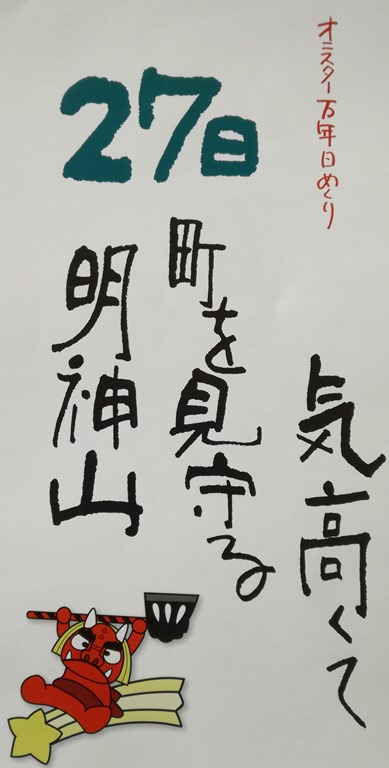 オニスター万年日めくり
27日
気高くて
町を見守る
明神山